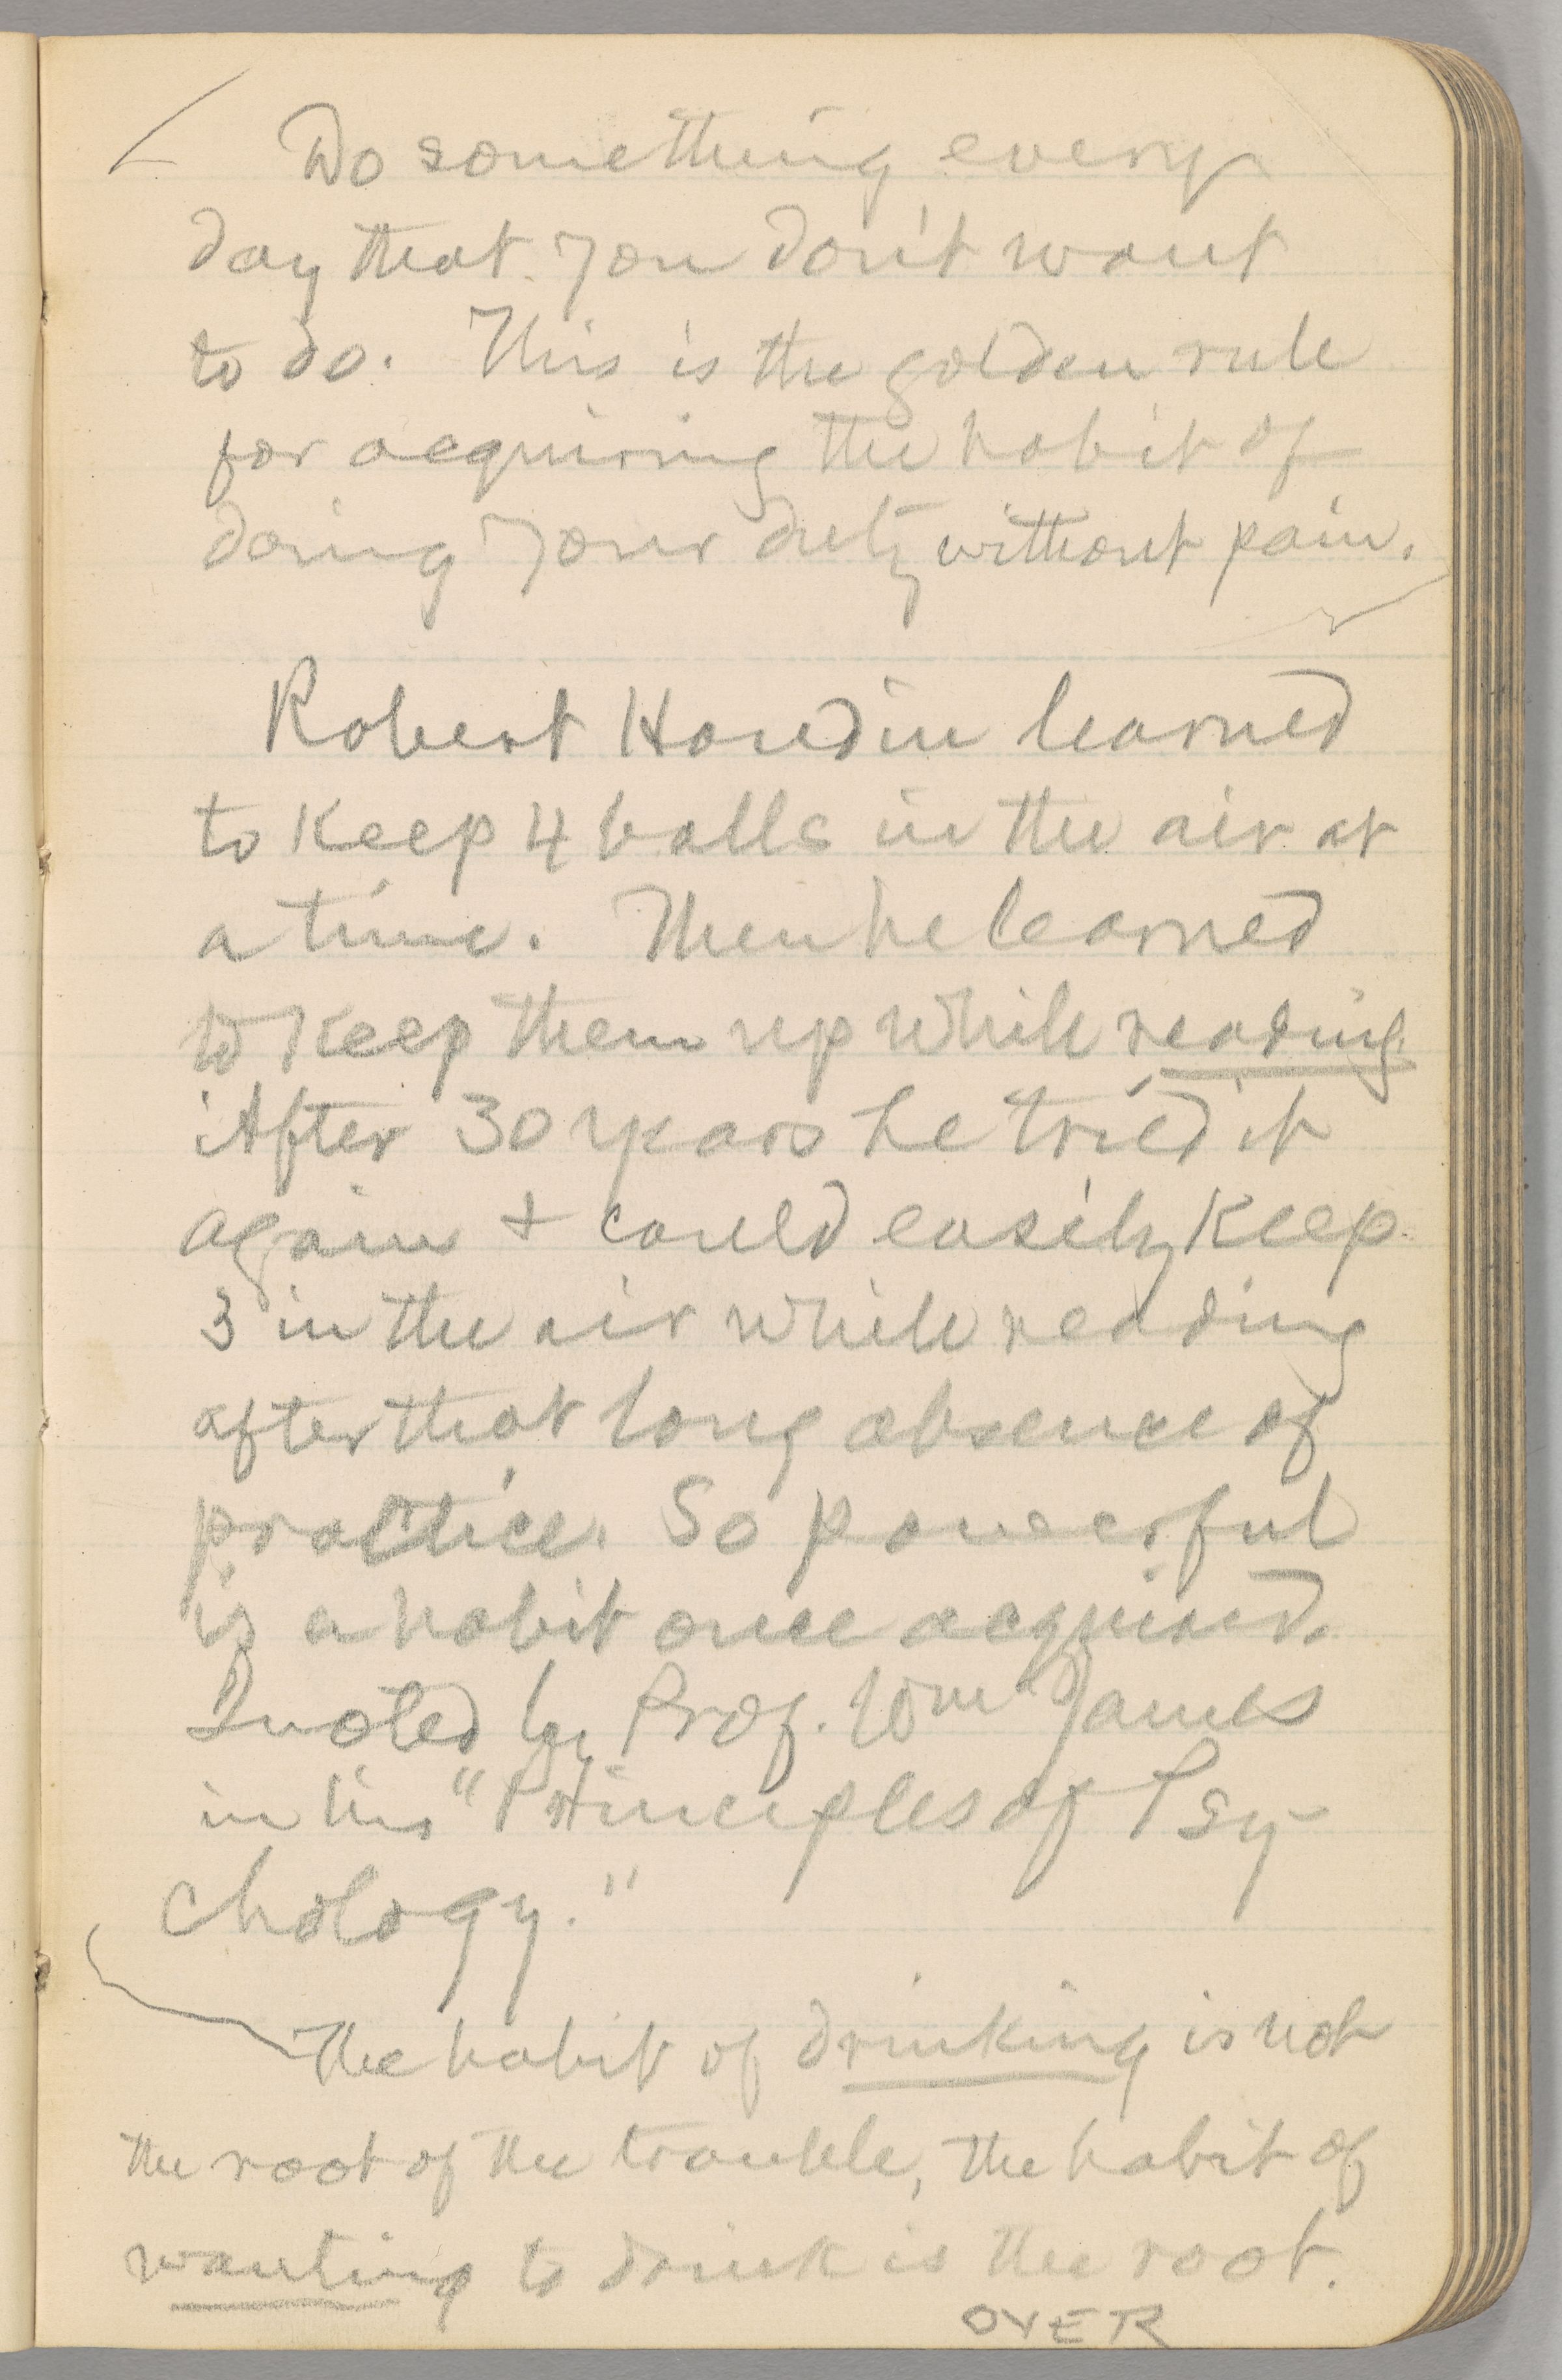 Do something every
day that you don't want
to do. This is the golden rule
for acquiring the habit of
doing your duty without pain.
Robert Houdin learned
to keep 4 balls in the air at
a time. Then he learned
to keep them up while reading.
After 30 years he tried it
again + could easily keep
3 in the air while reading
after that long absence of
practice. So powerful
is a habit once acquired.
Quoted by Prof. Wm James
in his "Principles of Psy-
chology."
The habit of drinking is not
the root of the trouble, the habit of
wanting to drink is the root.
OVER